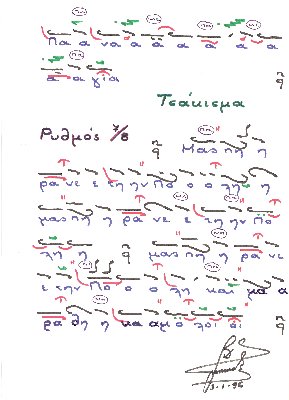 Πα α να α α α α α α
α α γί α
Τσάκισμα
Ρυθμός 7/8 Μας πη η
ρα νε ε τη ην Πό ο ο λη η
μας πη η ρα νε ε τη ην Πο
λη η μας πη η ρα νε
ε την Πο ο ο λη και μα α
ρα θη η κα αμο λοι οι
3-1-96